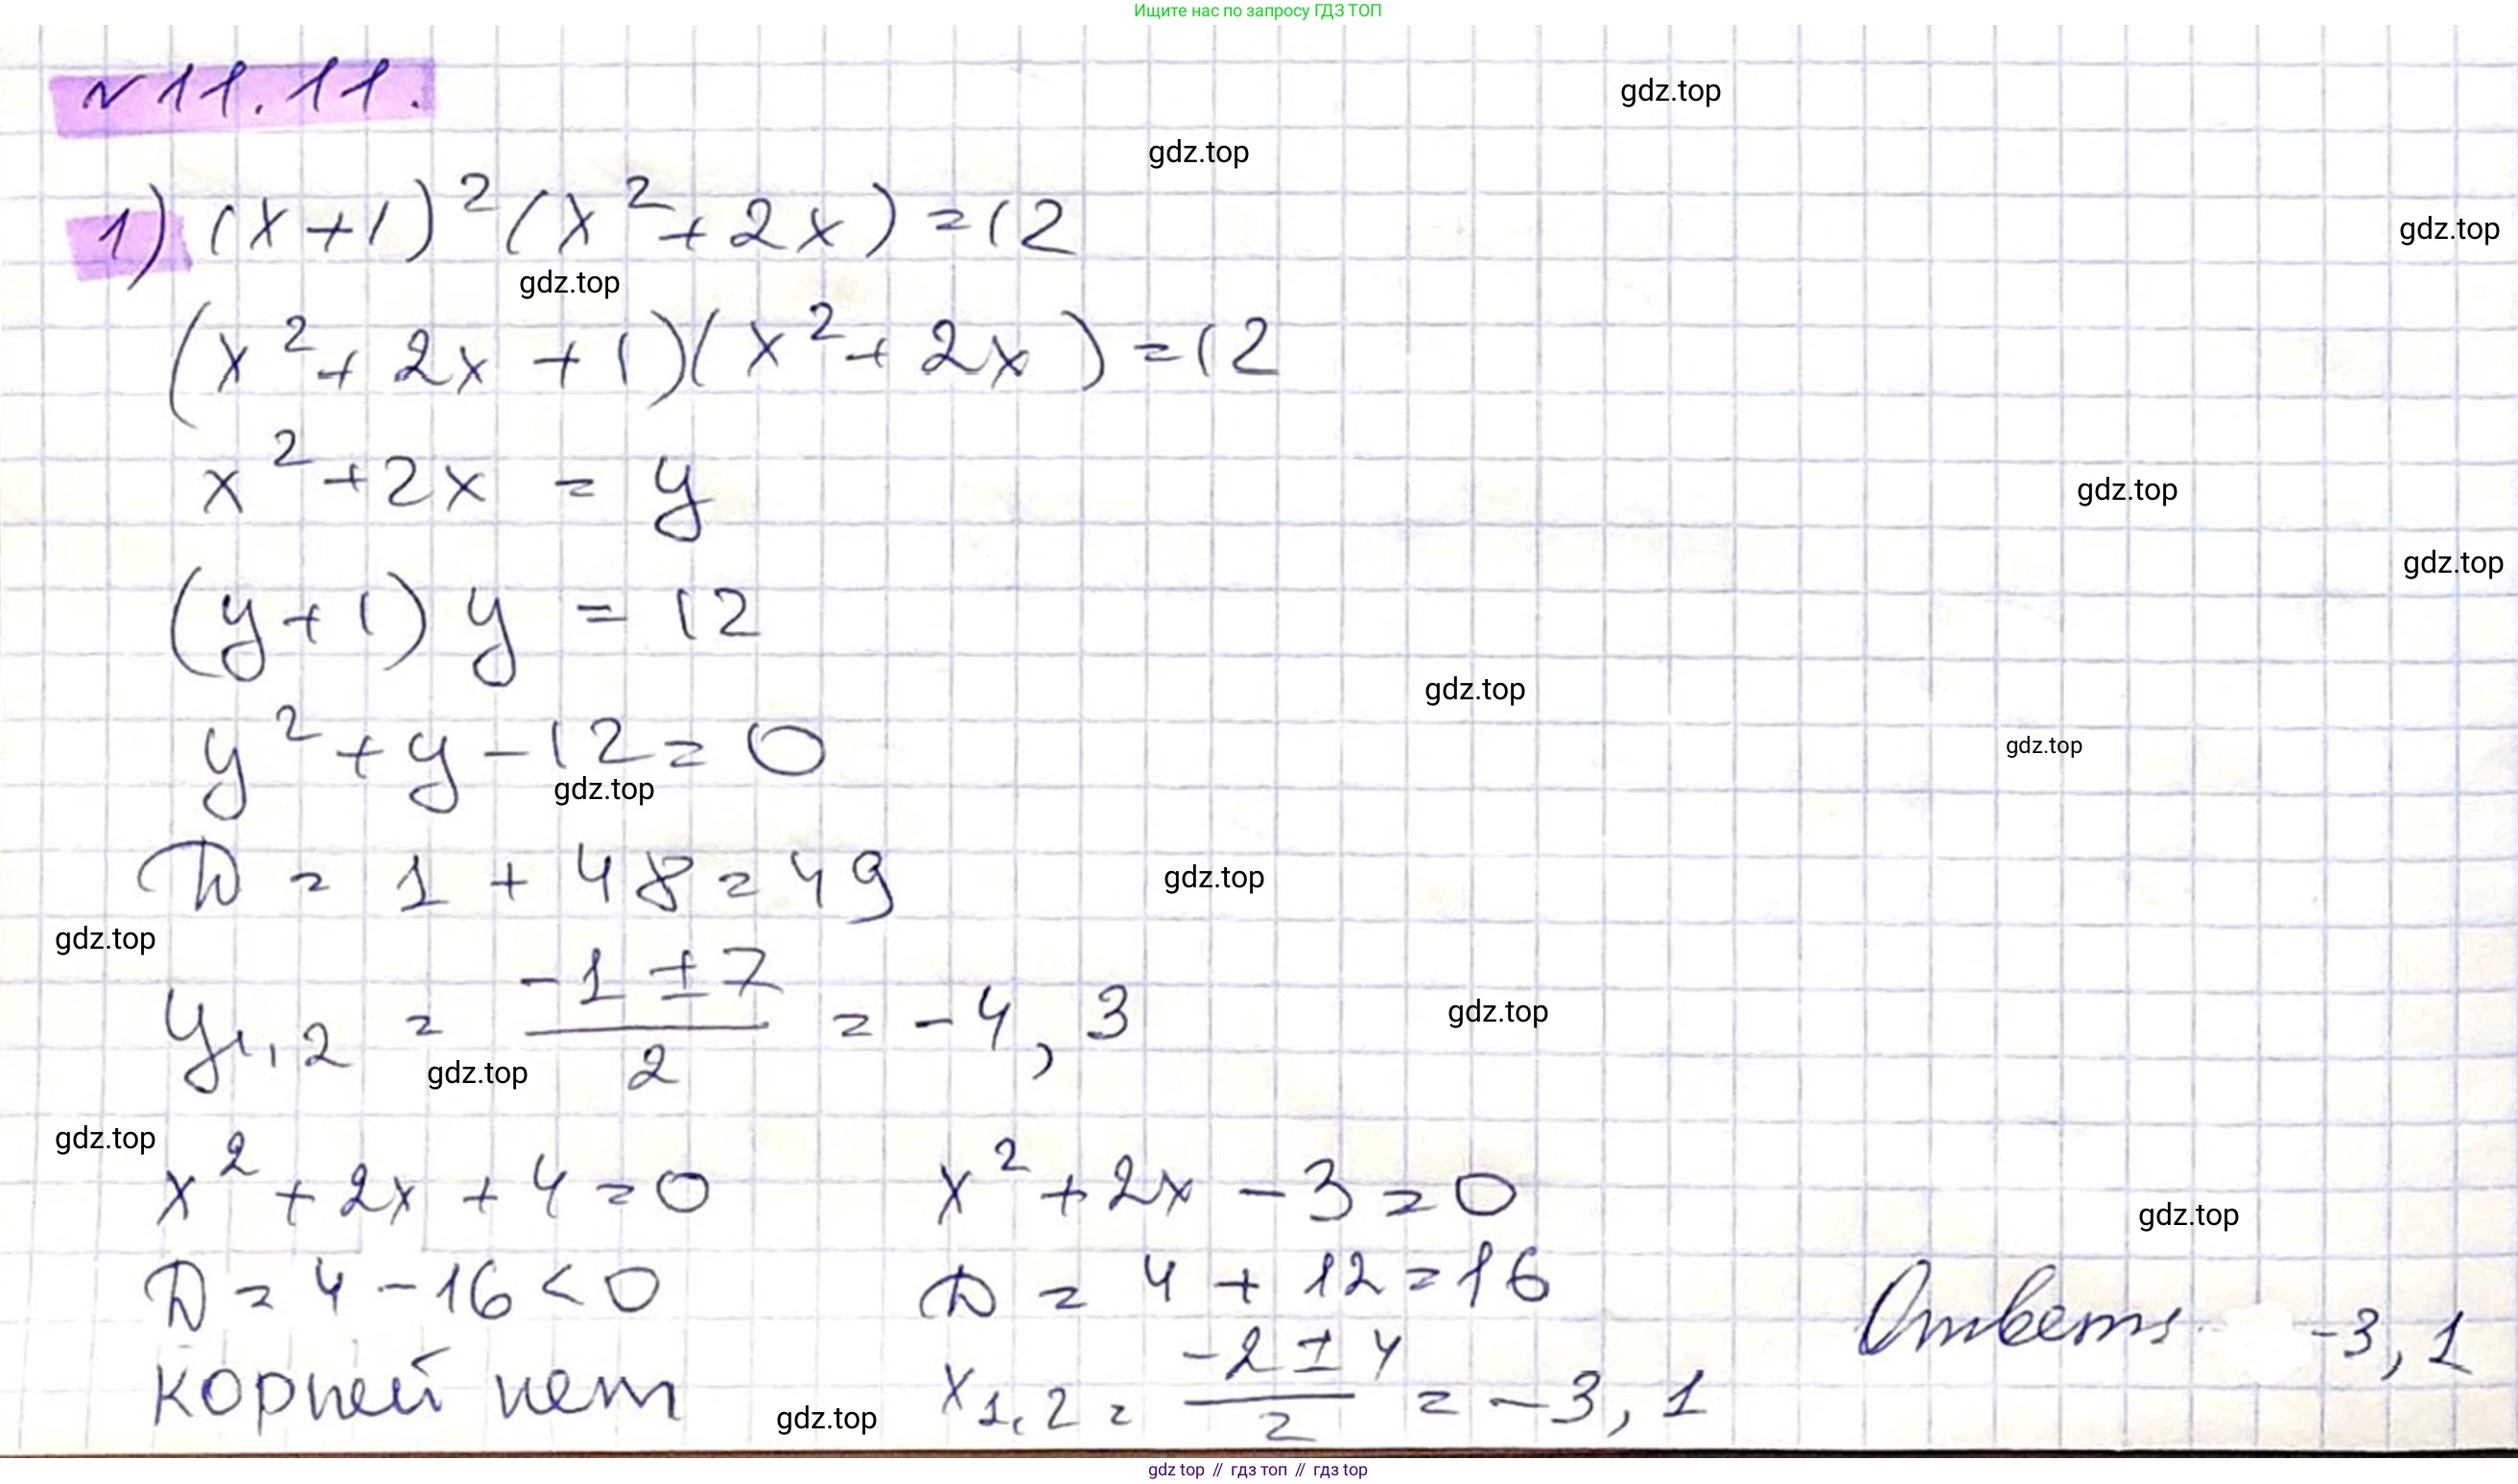 Ищите нас по запросу ГДЗ ТОП
№ 11.11.
gdz.top
gdz.top
1) (x+1)²(x²+2x)=12
gdz.top
gdz.top
(x²+2x+1)(x²+2x)=12
x²+2x = y
gdz.top
gdz.top
(y+1)y = 12
gdz.top
y²+y-12=0
gdz.top
gdz.top
D = 1 + 48 = 49
gdz.top
gdz.top
y₁,₂ = (-1 ± 7)/2 = -4, 3
gdz.top
gdz.top
gdz.top
x²+2x+4=0 x²+2x-3=0
gdz.top
D = 4 - 16 < 0 D = 4 + 12 = 16
Ответ: -3, 1
корней нет x₁,₂ = (-2 ± 4)/2 = -3, 1
gdz.top
gdz top // гдз топ // гдз top